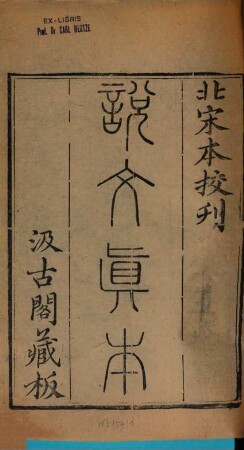 EX-LIBRIS
Prof. Dr CARL HENTZE
北宋本挍刋
說文真本
汲古閣藏板